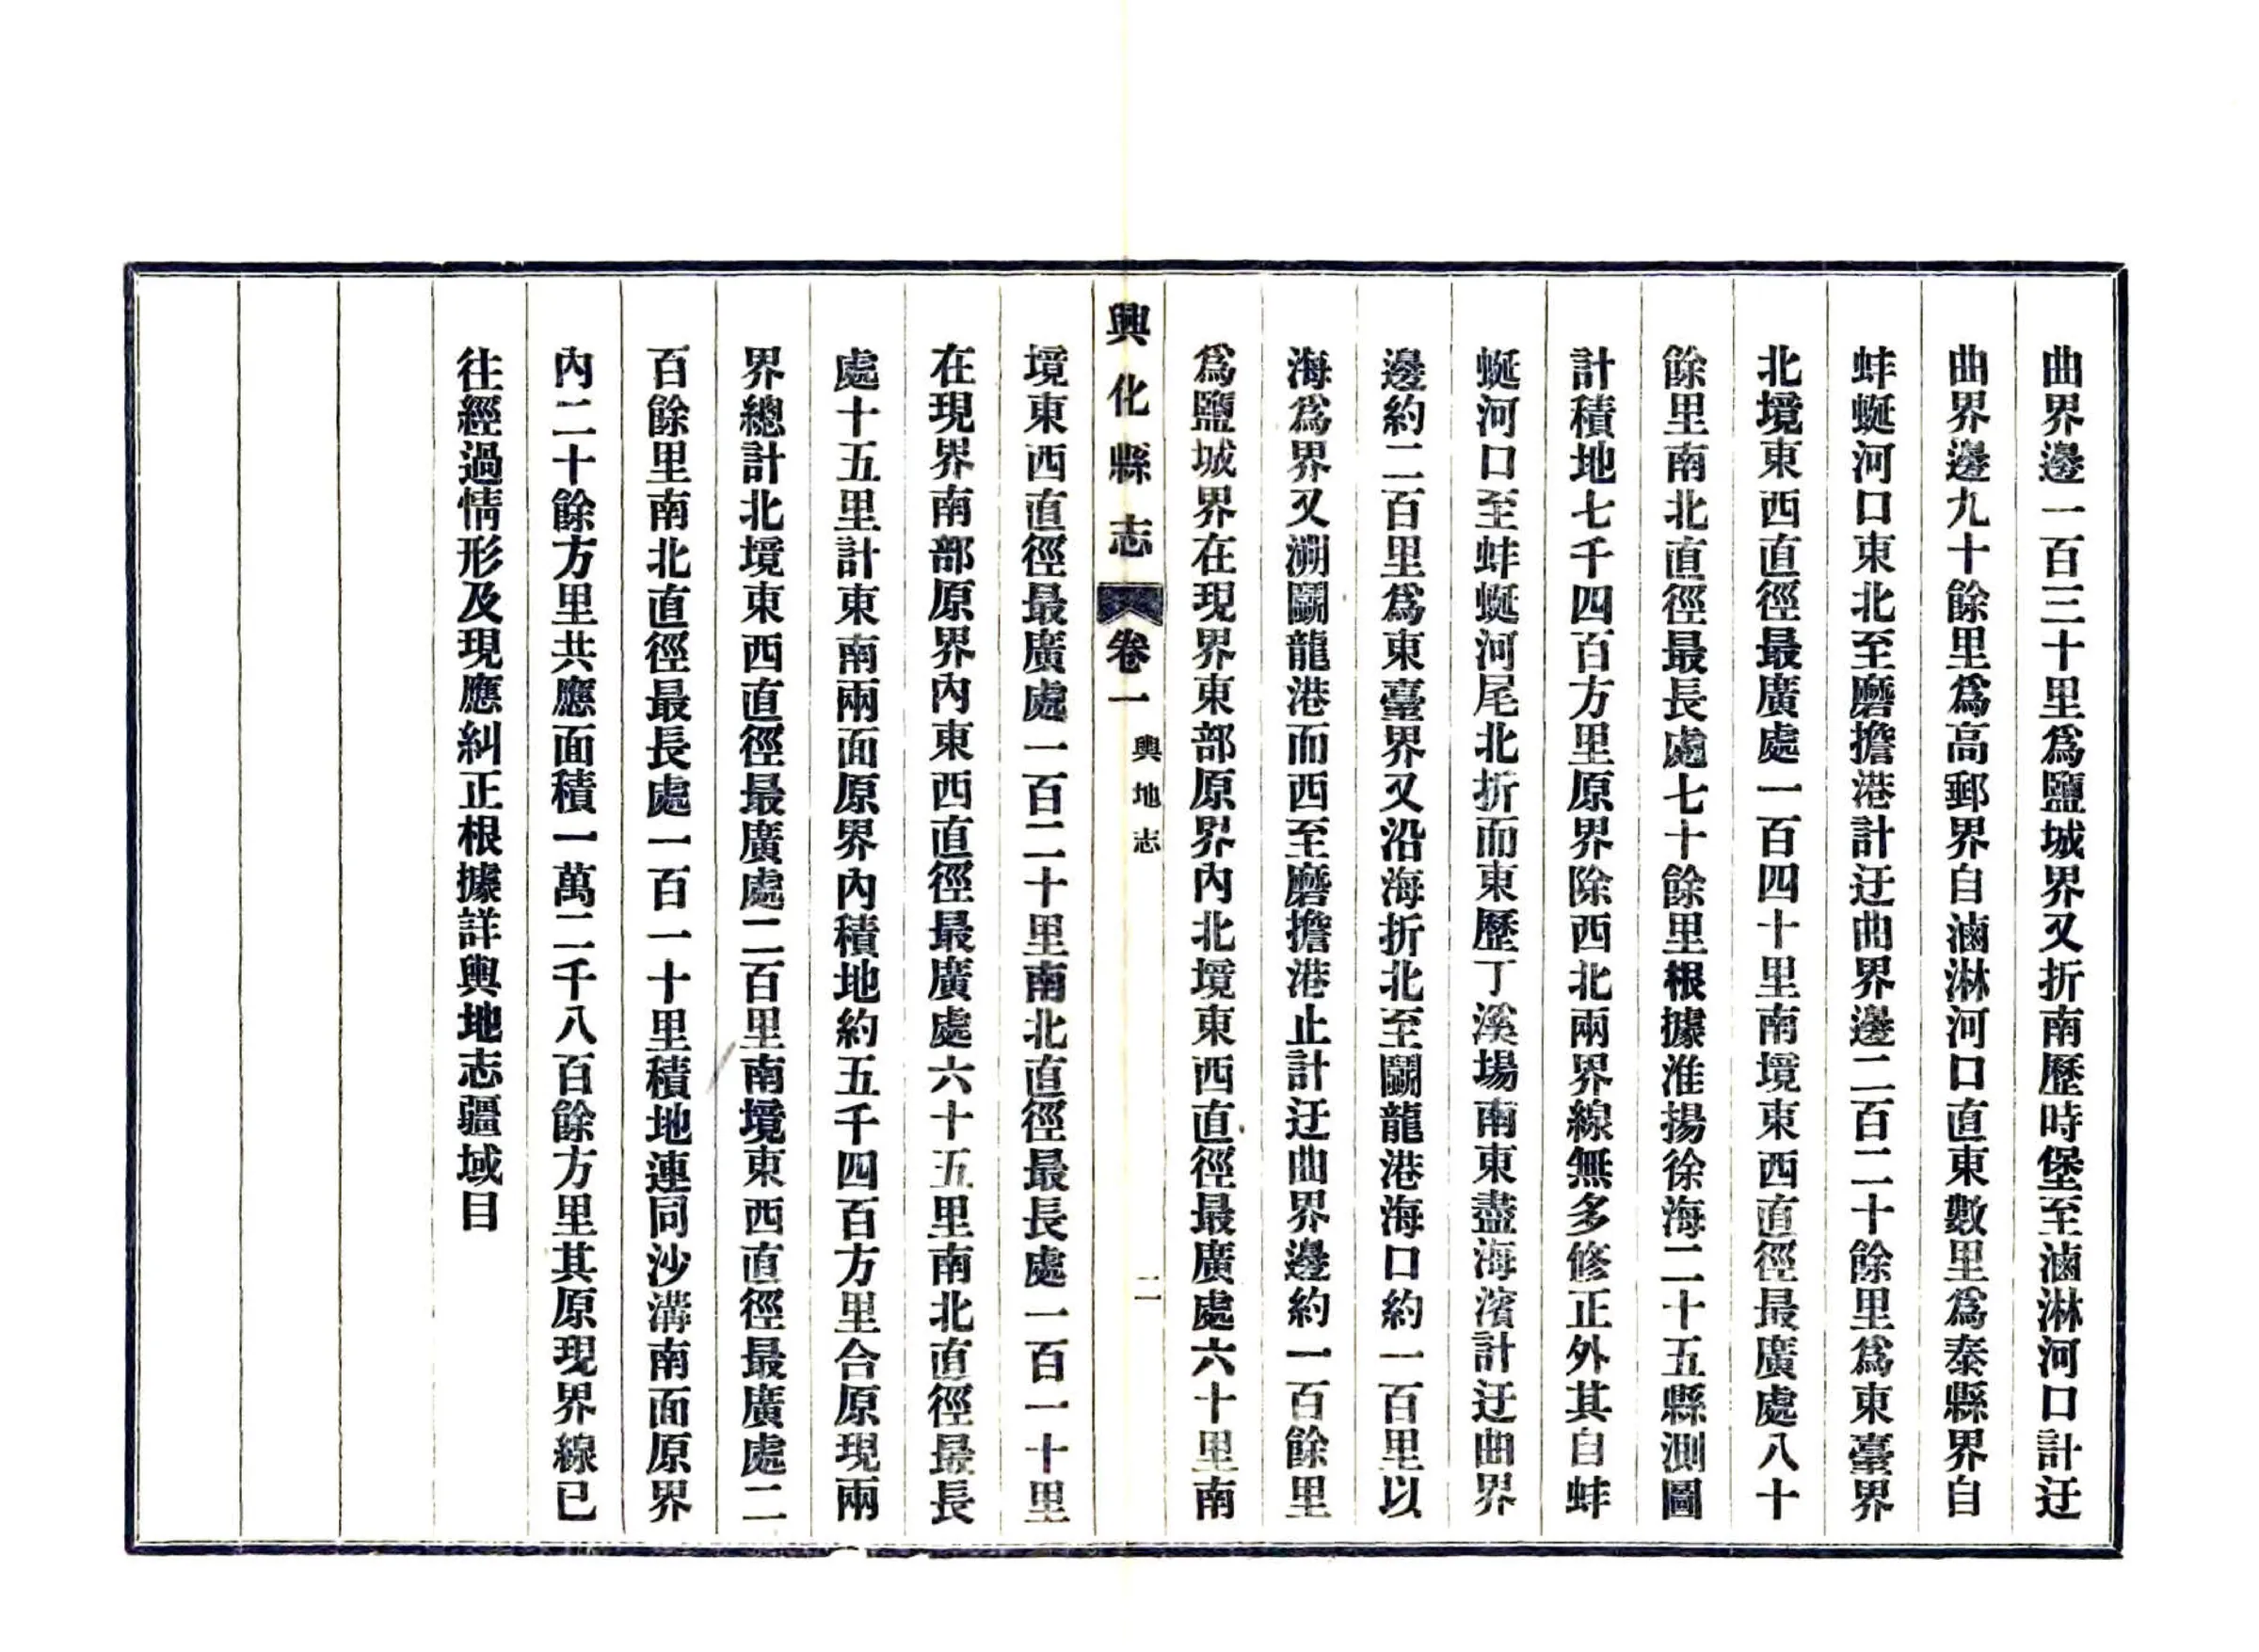 曲界邊一百三十里爲鹽城界又折南歷時堡至滷淋河口計迂
曲界邊九十餘里爲高郵界自滷淋河口直東數里爲泰縣界自
蚌蜒河口東北至磨擔港計迂曲界邊二百二十餘里爲東臺界
北境東西直徑最廣處一百四十里南境東西直徑最廣處八十
餘里南北直徑最長處七十餘里根據淮揚徐海二十五縣測圖
計積地七千四百方里原界除西北兩界線無多修正外其自蚌
蜒河口至蚌蜒河尾北折而東歷丁溪場南東盡海濱計迂曲界
邊約二百里爲東臺界又沿海折北至鬭龍港海口約一百里以
海爲界又溯鬭龍港而西至磨擔港止計迂曲界邊約一百餘里
爲鹽城界在現界東部原界內北境東西直徑最廣處六十里南
興化縣志 卷一 輿地志 二
境東西直徑最廣處一百二十里南北直徑最長處一百一十里
在現界南部原界內東西直徑最廣處六十五里南北直徑最長
處十五里計東南兩面原界內積地約五千四百方里合原現兩
界總計北境東西直徑最廣處二百里南境東西直徑最廣處二
百餘里南北直徑最長處一百一十里積地連同沙溝南面原界
內二十餘方里共應面積一萬二千八百餘方里其原現界線已
往經過情形及現應糾正根據詳輿地志疆域目